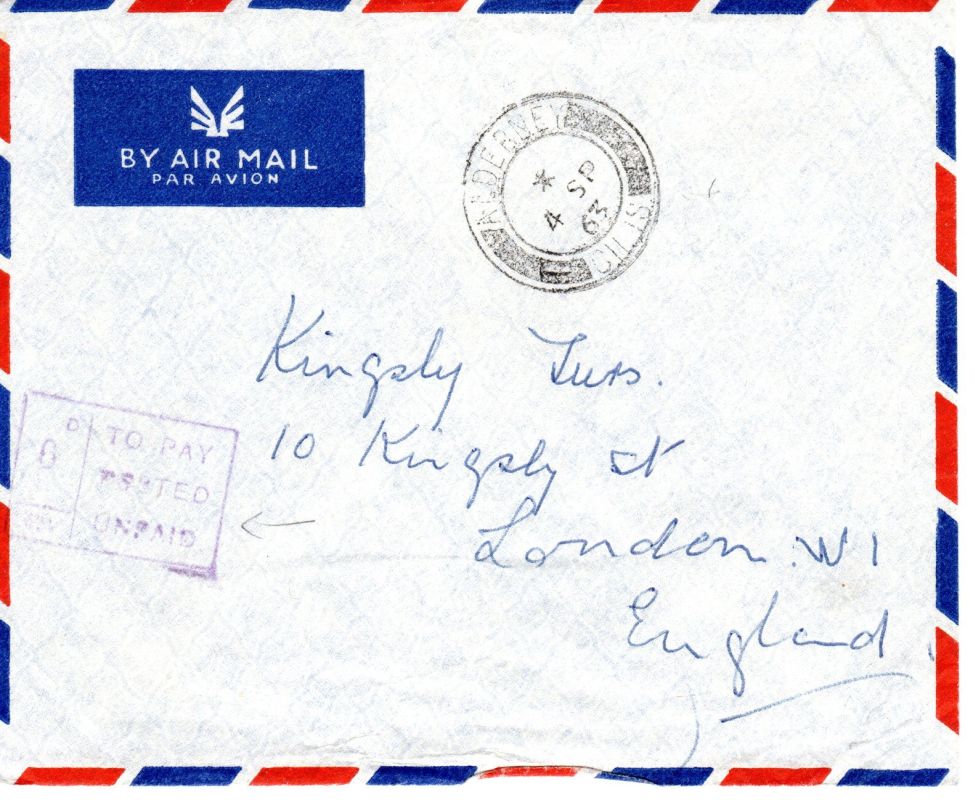 BY AIR MAIL
PAR AVION
ALDERNEY
*
4 SP
63
C.I.
Kingsly Furs.
10 Kingsly St
London. W1
England
6 D
TO PAY
POSTED
UNPAID